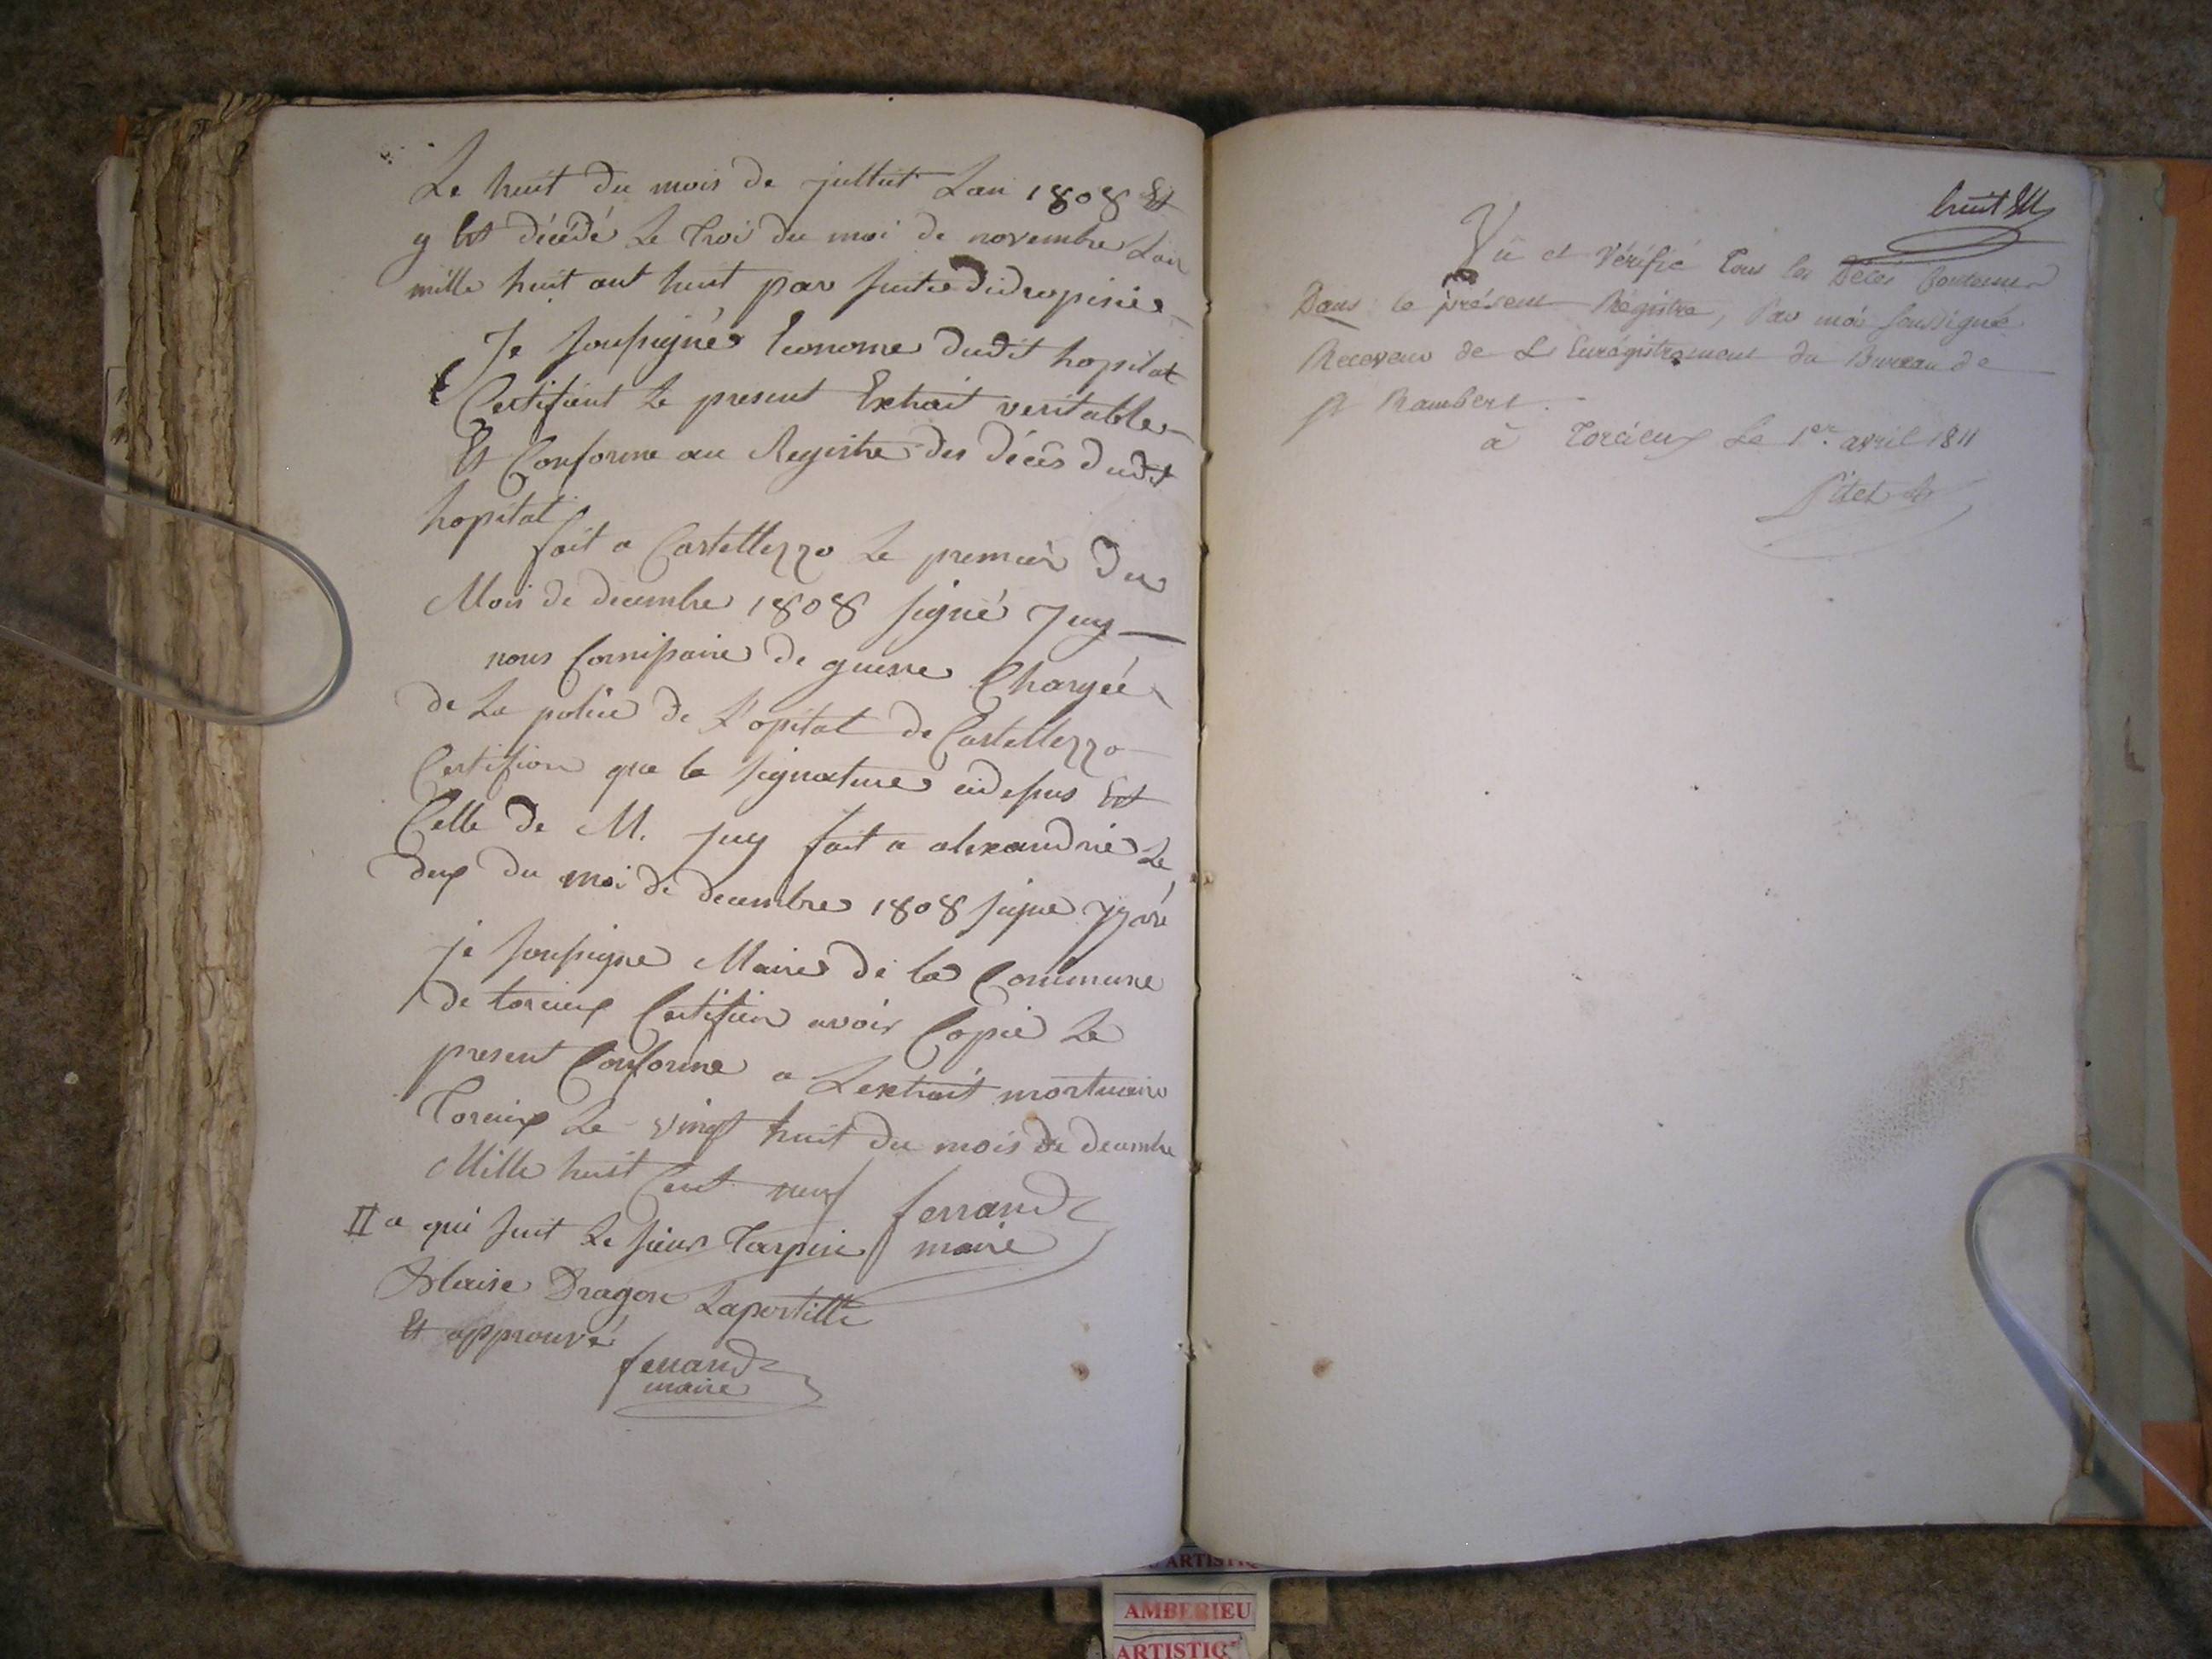 Le huit du mois de juillet Lan 1808 Et
y Est décédé Le Troi du moi de novembre Lan
mille huit cent huit par suite didropisie
Je soussigné Econome dudit hopital
Certifient Le present Extrait veritable
Et Conforme au Registre des décès dudit
hopital
fait a Castellezzo Le premier du
Mois de decembre 1808 signé Juy
nous Commissaire de guerre Chargée
de La police de L'opital de Castellezzo
Certifion que la signature cidessus Est
Celle de M. Juy fait a alexandrie Le
deux du moi de decembre 1808 signe
je soussigne Maire de la Commune
de torcieux Certifien avoir Copie Le
present Conforme a Lextrait mortuaire
Torcieux Le vingt huit du mois de decembre
Mille huit Cent neuf ferrand
maire
II a qui suit Le sieur Tarpin
Blaise Dragon Lapostille
Et approuvé
ferrand
maire
huit
Vu et Vérifié tous les Décès Contenus
Dans le présent Régistre, Par moi soussigné
Receveur de L'Enrégistrement du Bureau de
St Rambert.
à Torcieux Le 1er avril 1811
ARTISTIQ
AMBERIEU
ARTISTIQ